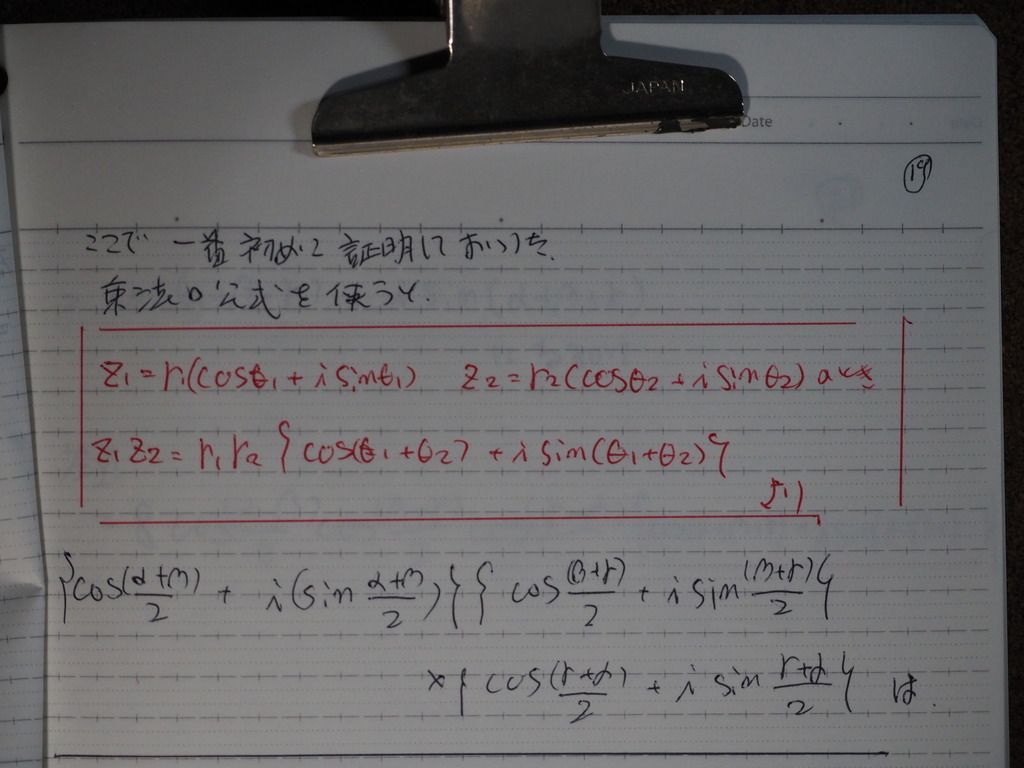 JAPAN
Date
⑲
ここで 一番初めに証明しておいた、
乗法の公式を使うと、
z₁=r₁(cosθ₁+i sinθ₁) z₂=r₂(cosθ₂+i sinθ₂) のとき
z₁z₂=r₁r₂{cos(θ₁+θ₂)+i sin(θ₁+θ₂)}
より
{cos(α+β)/2 + i(sin (α+β)/2)}{cos (β+γ)/2 + i sin (β+γ)/2}
×{cos (γ+α)/2 + i sin (γ+α)/2} は、